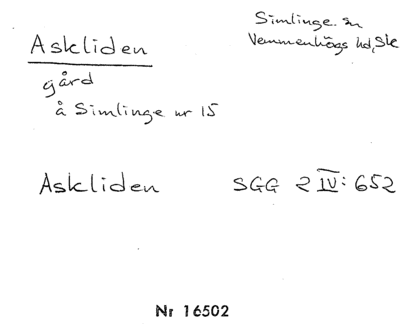 Askliden
Simlinge sn
Vemmenhögs hd, Sk
gård
å Simlinge nr 15
Askliden SGG 2 IV: 652
Nr 16502